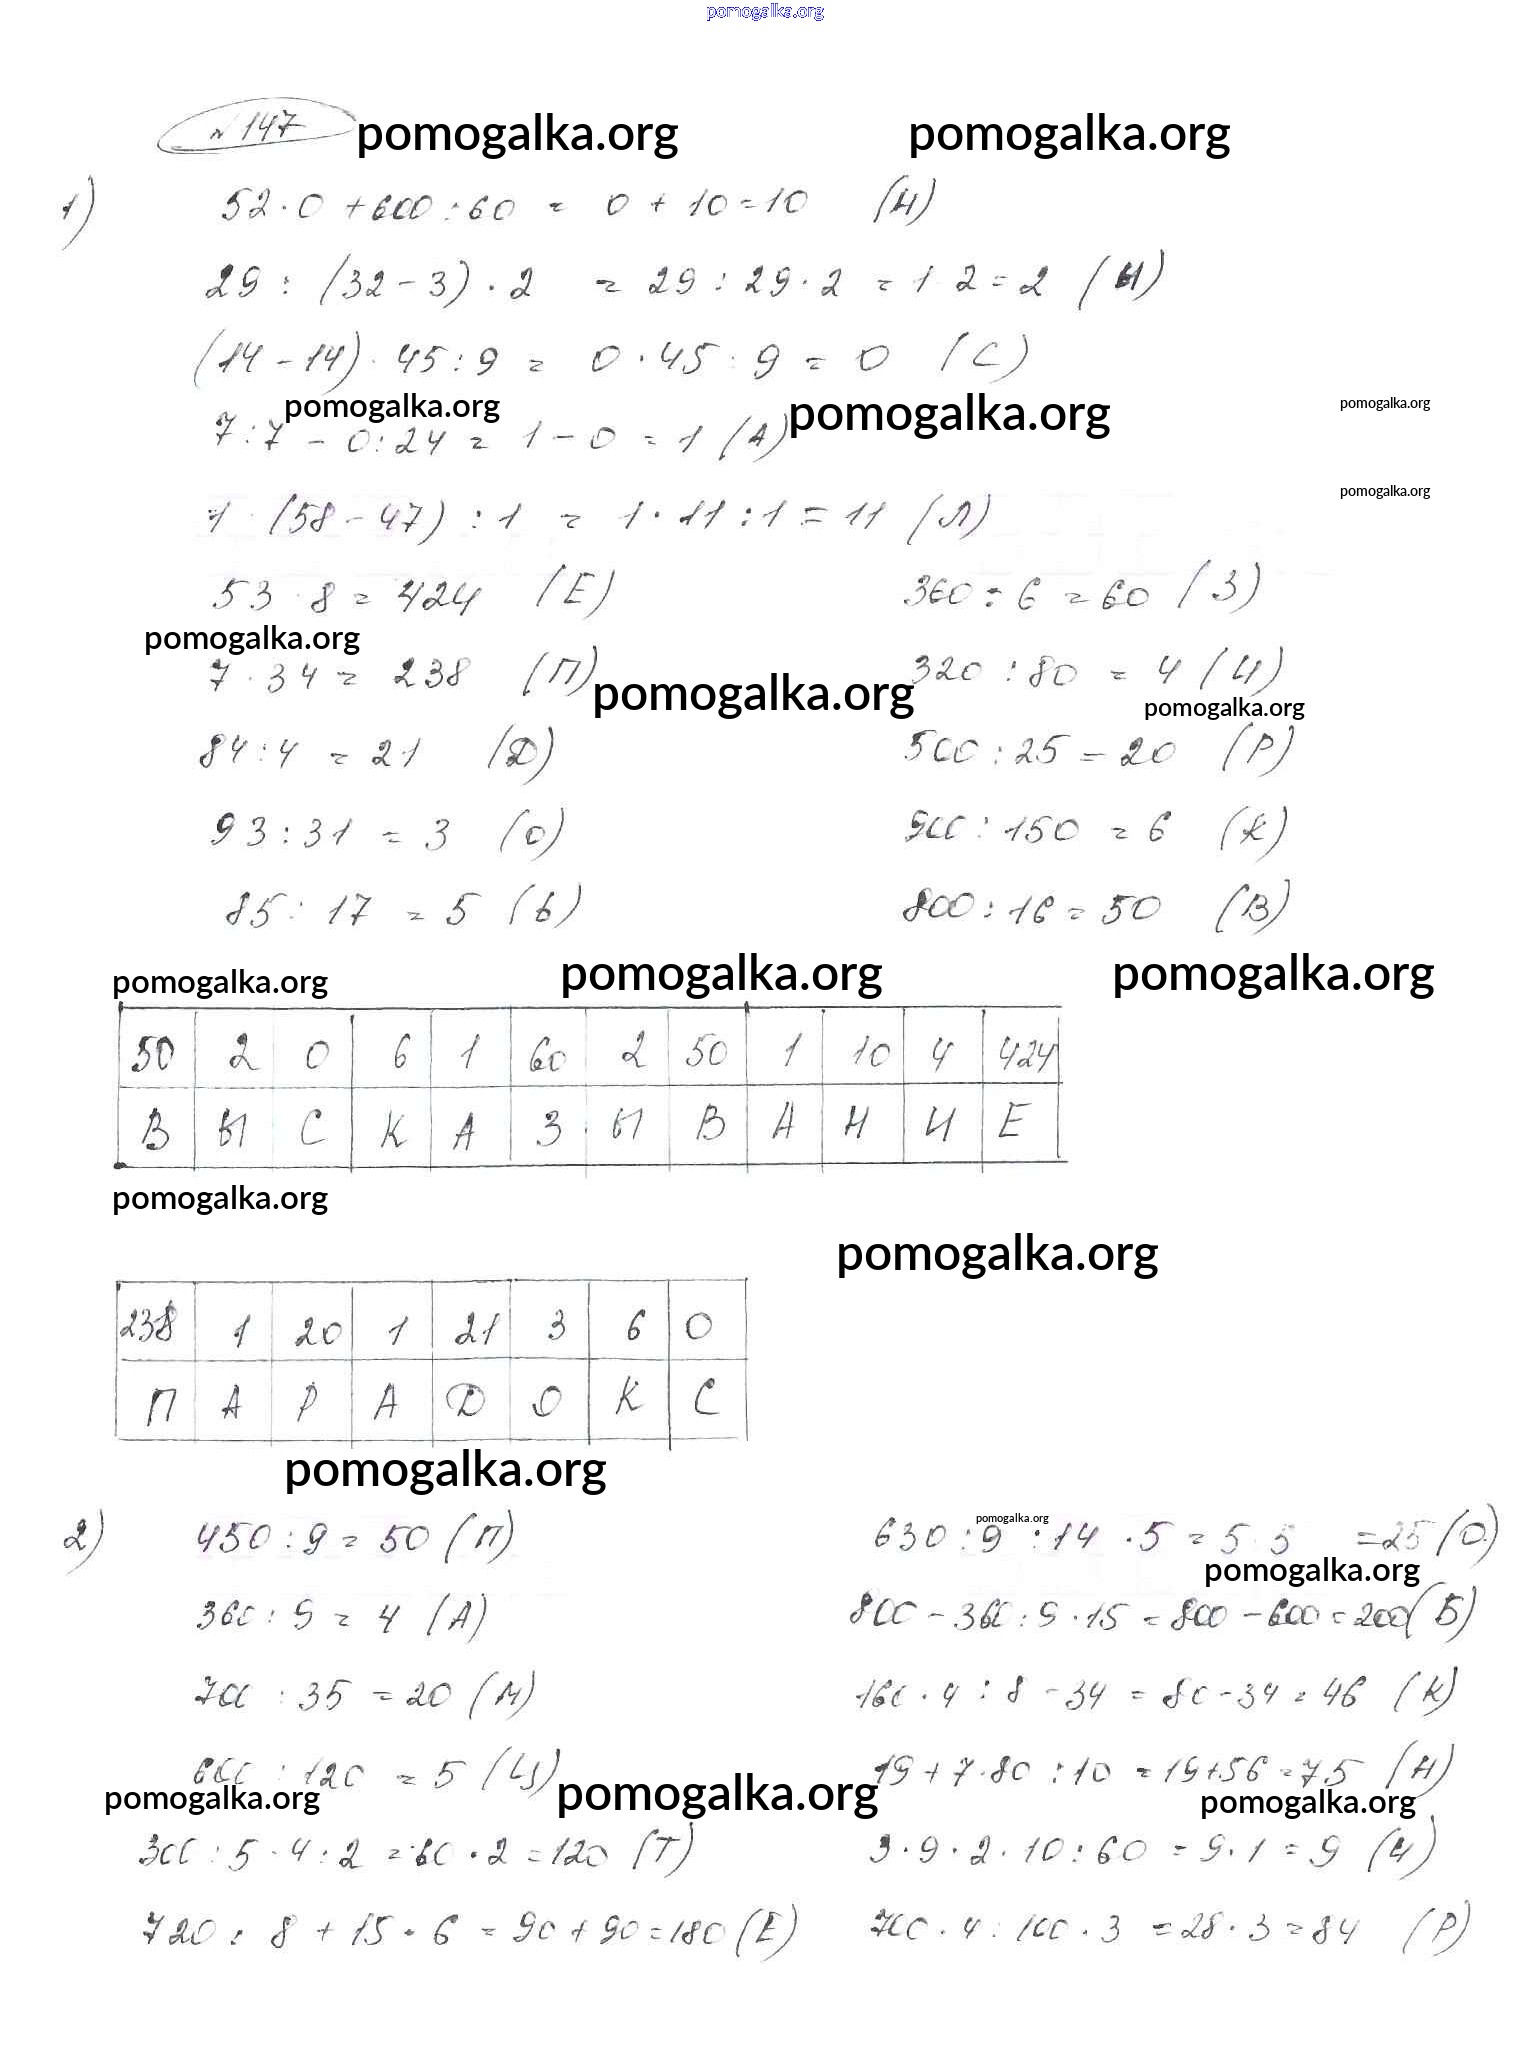 pomogalka.org
№147 pomogalka.org pomogalka.org
1) 52·0+600:60 = 0+10=10 (Н)
29:(32-3)·2 = 29:29·2 = 1·2=2 (Ы)
(14-14)·45:9 = 0·45:9 = 0 (С)
pomogalka.org pomogalka.org pomogalka.org
7:7-0:24 = 1-0=1 (А)
pomogalka.org
1·(58-47):1 = 1·11:1=11 (Л)
53·8=424 (Е) 360:6=60 (З)
pomogalka.org
7·34=238 (П) pomogalka.org 320:80=4 (И)
pomogalka.org
84:4=21 (Д) 500:25=20 (Р)
93:31=3 (О) 900:150=6 (К)
85:17=5 (Ь) 800:16=50 (В)
pomogalka.org pomogalka.org pomogalka.org
50 2 0 6 1 60 2 50 1 10 4 424
В Ы С К А З Ы В А Н И Е
pomogalka.org
pomogalka.org
238 1 20 1 21 3 6 0
П А Р А Д О К С
pomogalka.org
2) 450:9=50 (П) pomogalka.org 630:9:14·5=5·5 =25 (О)
pomogalka.org
360:9=4 (А) 800-360:9·15=800-600=200 (Б)
700:35=20 (М) 160·4:8-34=80-34=46 (К)
600:120=5 (Ц) 19+7·80:10=19+56=75 (Н)
pomogalka.org pomogalka.org pomogalka.org
300:5·4:2=60·2=120 (Т) 3·9·2·10:60=9·1=9 (И)
720:8+15·6=90+90=180 (Е) 700·4:100·3=28·3=84 (Р)